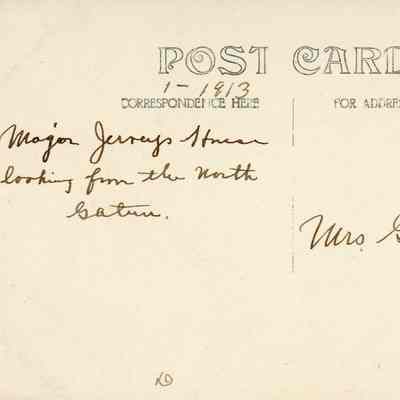 POST CARD
1-1913
CORRESPONDENCE HERE
FOR ADDRE
Major Jerveys House
looking from the North
Gatun.
Mrs G